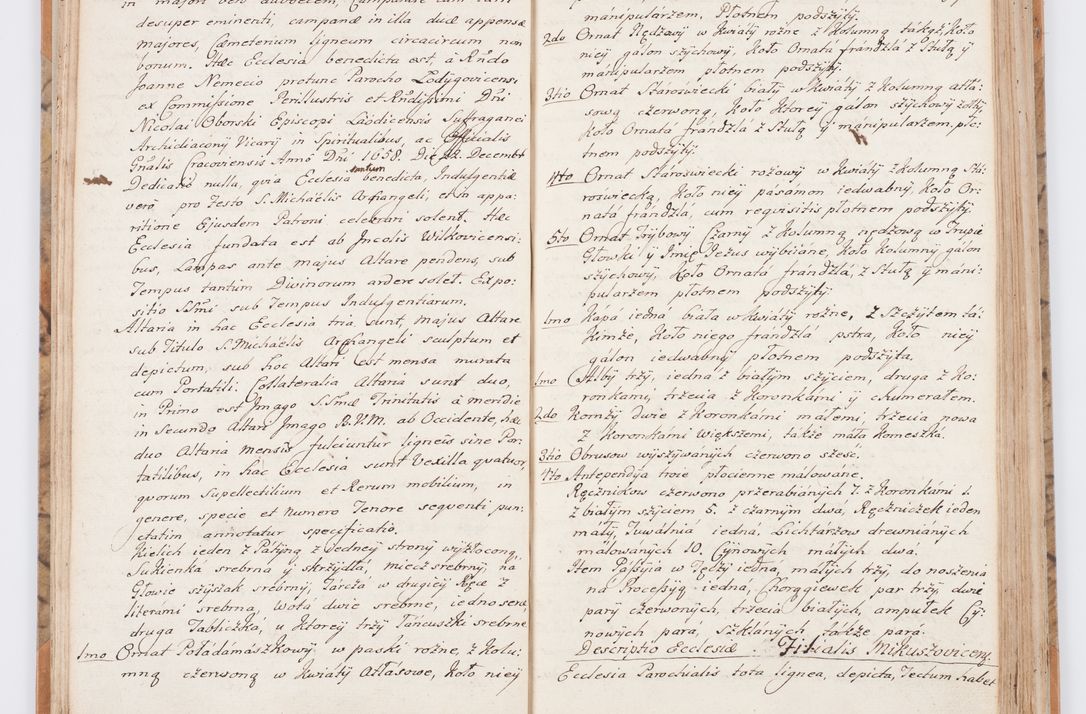 in majori vero
desuper eminenti, campanæ in illa duæ appensæ
majores, Cæmeterium ligneum circacircum non
bonum. Hæc Ecclesia benedicta est, à Rndo
Joanne Nemecio pretunc Parocho Lodygovicensi
ex Commissione Perillustris et Rndissimi Dni
Nicolai Oborski Episcopi Laodicensis Suffraganei
Archidiaconij Vicarij in Spiritualibus, ac Officialis
Gnalis Cracoviensis Anno Dni 1658. Die 22. Decembr
Dedicatio nulla, qvia Ecclesia tantum benedicta, Indulgentiæ
verò pro Festo S. Michaëlis Archangeli, et in appa:
ritione Ejusdem Patroni celebrari solent. Hæc
Ecclesia fundata est ab Incolis Wilkovicensi:
bus, Lampas ante majus Altare pendens, sub
Tempus tantum Divinorum ardere solet. Expo:
sitio SSmi sub Tempus Indulgentiarum.
Altaria in hac Ecclesia tria sunt, majus Altare
sub Titulo S. Michaëlis Archangeli sculptum et
depictum, sub hoc Altari est mensa murata
cum Portatili: Collateralia Altaria sunt duo,
in Primo est Imago S.Smæ Trinitatis à meridie
in Secundo Altari Imago B.V.M. ab Occidente, hæc
duo Altaria mensis fulciuntur ligneis sine Por:
tatilibus, in hac Ecclesia sunt Vexilla qvatuor,
qvorum Supellectilium et Rerum mobilium, in
genere, specie et Numero Tenore seqventi pun:
ctatim annotatur specificatio.
Kielich ieden z Pátyną z iedney strony wyzłocony,
Sukienka srebrna y skrzydłá, miecz srebrny, ná
Głowie szyszak srebrny, Tarcza w drugiey Ręce z
literami srebrna, Wotá dwie srebrne, iedno serce,
druga Tabliczka, u ktorey trzy Łáncuszki srebrne
1mo Ornat Połádamászkowy w paski rożne, z Kolu:
mną czerwoną w kwiáty Atłásowe, koło niey
mánipularzem, Płotnem podszyty.
2do Ornat Nędzowy w kwiáty rożne z Kolumną tákąż, koło
niey galon szychowy, koło Ornatu frándzlá z Stułą y
mánipularzem płotnem podszyty.
3tio Ornat Stároswiecki biały w kwiáty z Kolumną atłá:
sową czerwoną, koło ktorey galon szychowy żołty,
koło Ornata frándzlá z Stułą y mánipularzem, pło:
tnem podszyty.
4to Ornat Stároswiecki rożowy w kwiáty z Kolumną Stá:
roswiecką, koło niey pásamon iedwabny, koło Or:
nata frándzla, cum reqvisitis płotnem podszyty.
5to Ornat Trybowy Czarny z Kolumną nędzową w Trupie
Głowki y Imię Jezus wybiiáne, koło Kolumny galon
szychowy, koło Ornatá frándzlá, z Stułą y máni:
pularzem płotnem podszyty
1mo Kapá iedna biała w kwiáty rożne, z Szczytem tá:
kimże, koło niego frándzlá pstra, koło niey
galon iedwabny płotnem podszyta.
1mo Alby trzy, iedná z białym szyciem, druga z Ko:
ronkami, trzecia z Koronkámi y chumerałem.
2do Komży dwie z Koronkámi małemi, trzecia nowa
z Koronkámi większemi, także máła Komeszká.
3tio Obrusow wyszywánych czerwono szesc.
4to Antependya troie płocienne málowáne.
Ręcznikow czerwono przerabiánych 7. z Koronkámi 1.
z białym szyciem 5. z czarnym dwa, Ręczniczek ieden
mały, Tuwalnia iedná, Lichtarzow drewniánych
málowánych 10. Cynowych máłych dwa.
Item Passyia w Tęczy iedna, małych trzy, do noszenia
na Processyą iedná, Chorągiewek par trzy, dwie
pary czerwonych, trzecia białych, ampułek Cy:
nowych pará, Szklánych tákże pará.
Descriptio Ecclesiæ Filialis Mikuszovicens.
Ecclesia Parochialis tota lignea, depicta, Tectum habet